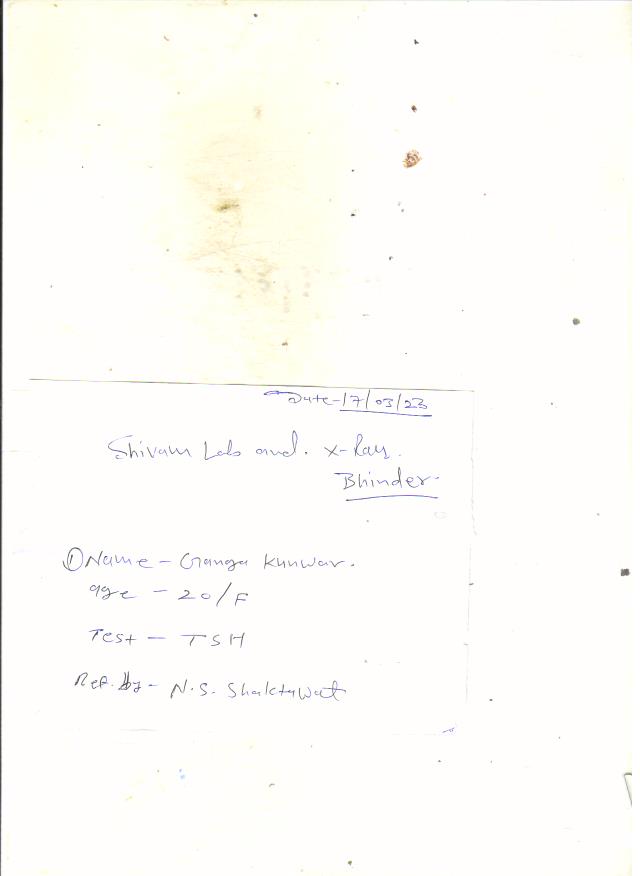 Date-17/03/23
Shivam Lab and. X-Ray.
Bhinder-
① Name - Ganga Kunwar.
age - 20/F
Test - TSH
Ref. by - N.S. Shaktawat